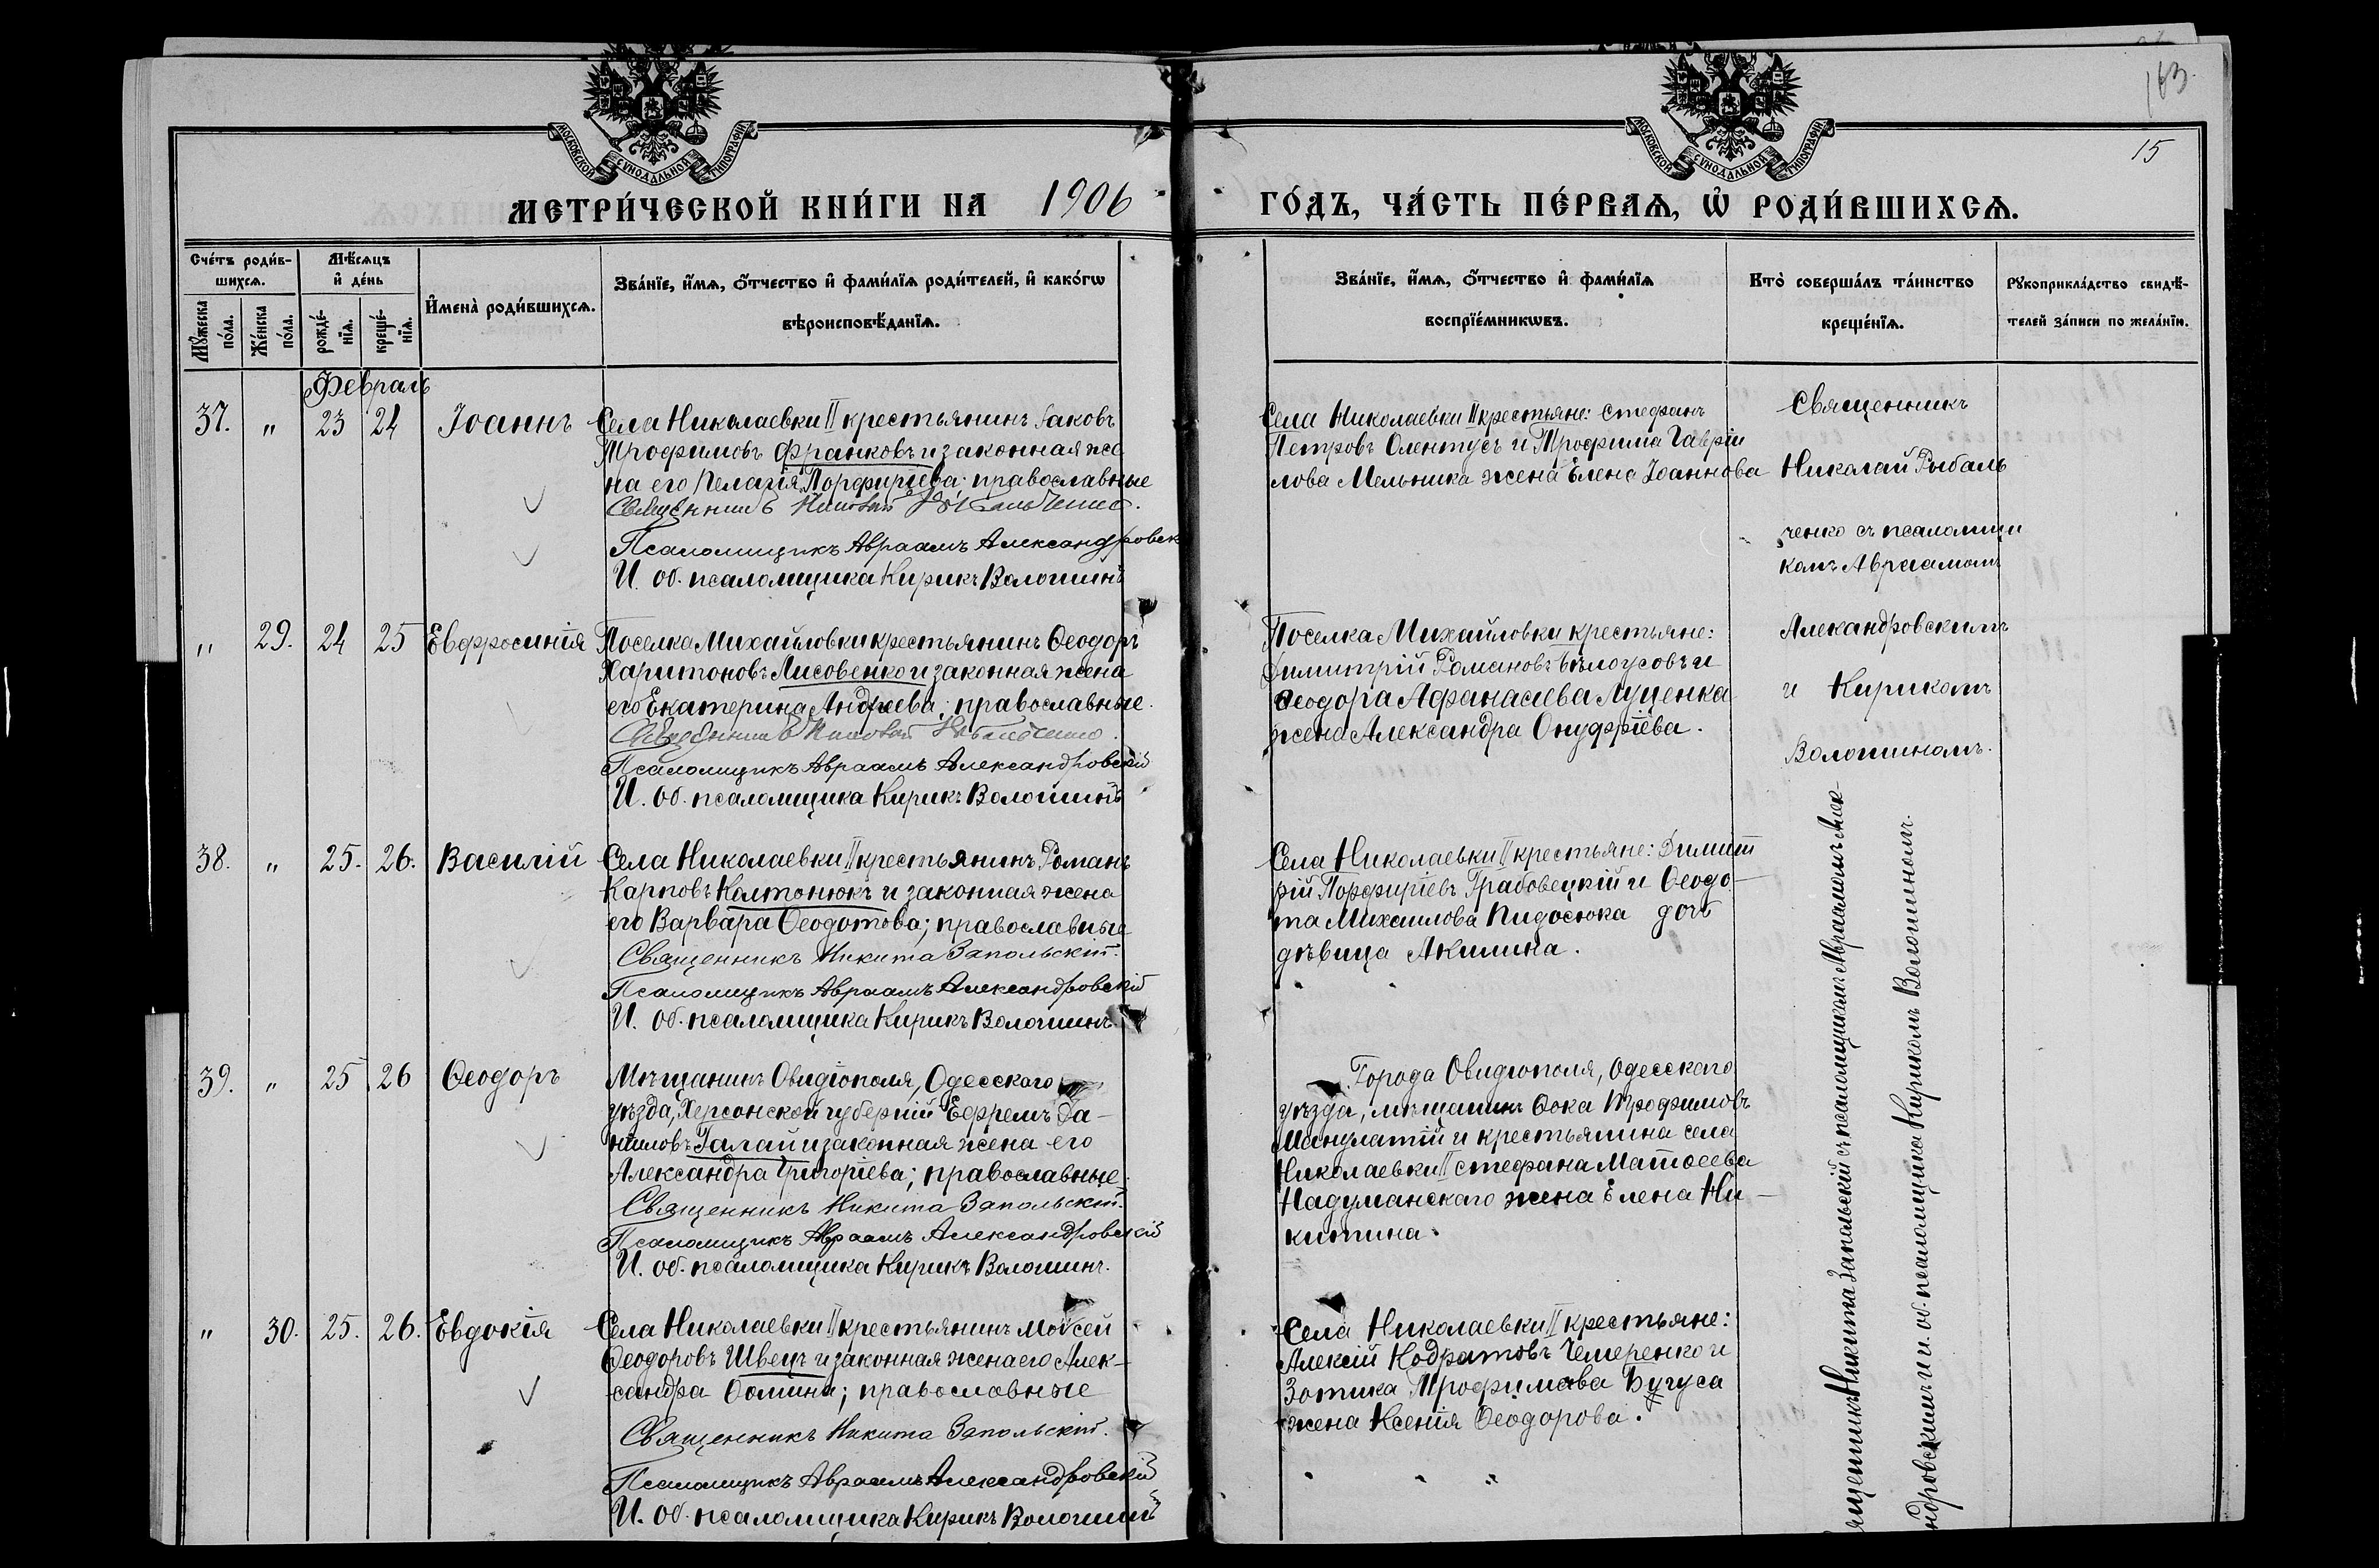 163.
15
МОСКОВСКОЙ СУНОДАЛЬНОЙ ТИПОГРАФІИ
МОСКОВСКОЙ СУНОДАЛЬНОЙ ТИПОГРАФІИ
МЕТРИ́ЧЕСКОЙ КНИ́ГИ НА 1906 ГО́ДЪ, ЧА́СТЬ ПЕ́РВАѦ, Ѡ҆ РОДИ́ВШИХСѦ.
Сче́тъ роди́в-
шихсѧ.
Мꙋ́жеска по́ла.
Же́нска по́ла.
Мѣ́сѧцъ
и҆ де́нь
рожде́-
нїѧ.
креще́-
нїѧ.
И҆мена̀ роди́вшихсѧ.
Зва́нїе, и҆́мѧ, ѻ҆́тчество и҆ фами́лїѧ роди́телей, и҆ како́гѡ
вѣроисповѣ́данїѧ.
Зва́нїе, и҆́мѧ, ѻ҆́тчество и҆ фами́лїѧ
воспрїе́мникѡвъ.
Кто̀ соверша́лъ та́инство
креще́нїѧ.
Рꙋкоприкла́дство свидѣ́-
телей за́писи по жела́нїю.
Февраль
37. " 23 24 Іоаннъ
Села Николаевки II крестьянинъ Іаковъ
Трофимовъ Франковъ и законная же
на его Пелагія Порфиріева; православные
Священникъ Николай Рыбальченко.
Псаломщикъ Авраамъ Александровск
И. об. псаломщика Кирикъ Волошинъ
Села Николаевки II крестьяне: Стефанъ
Петровъ Олентусъ и Трофима Гаврiи
лова Мельника жена Елена Іоаннова
Священникъ
Николай Рыбаль
ченко съ псаломщи
комъ Авраамомъ
Алекандровскимъ
и Кирикомъ
Волошиномъ.
" 29. 24 25 Евфросинія
Поселка Михайловки крестьянинъ Ѳеодоръ
Харитоновъ Лисовенко и законная жена
его Екатерина Андреева; православные.
Священникъ Николай Рыбальченко.
Псаломщикъ Авраамъ Александровскій
И. об. псаломщика Кирикъ Волошинъ
Поселка Михайловки крестьяне:
Димитрій Романовъ Бѣлоусовъ и
Ѳеодора Афанасіева Луценка
жена Александра Онуфріева.
38. " 25. 26. Василій
Села Николаевки II крестьянинъ Романъ
Карповъ Колтонюкъ и законная жена
его Варвара Ѳеодотова; православные
Священникъ Никита Запольскій.
Псаломщикъ Авраамъ Александровскій
И. об. псаломщика Кирикъ Волошинъ.
Села Николаевки II крестьяне: Димит
рій Порфиріевъ Грабовецкій и Ѳеодо-
та Михаилова Пидосюка дочь
дѣвица Акилина.
Священникъ Никита Запольскій съ псаломщикомъ Авраамомъ Алек-
сандровскимъ и и. об. псаломщика Кирикомъ Волошиномъ.
39. " 25 26 Ѳеодоръ
Мѣщанинъ Овидіополя, Одесскаго
уѣзда, Херсонской губерніи Ефремъ Да-
ніиловъ Галай и законная жена его
Александра Григоріева; православные.
Священникъ Никита Запольскій.
Псаломщикъ Авраамъ Александровскій
И. об. псаломщика Кирикъ Волошинъ.
Города Овидіополя, Одесскаго
уѣзда, мѣщанинъ Ѳока Трофимовъ
Манулатій и крестьянина села
Николаевки II Стефана Матѳеева
Надуманскаго жена Елена Ни-
китина.
" 30. 25. 26. Евдокія
Села Николаевки II крестьянинъ Моисей
Ѳеодоровъ Швецъ и законная жена его Алек-
сандра Ѳомина; православные
Священникъ Никита Запольскій.
Псаломщикъ Авраамъ Александровскій
И. об. псаломщика Кирикъ Волошинъ
Села Николаевки II крестьяне:
Алексій Кодратовъ Чемеренко и
Зотика Трофимова Бугуса
жена Ксенія Ѳеодорова.